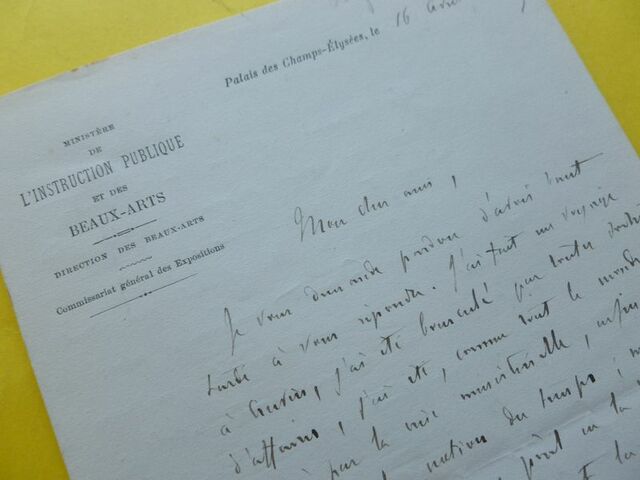 Palais des Champs-Élysées, le 16
MINISTÈRE
DE
L'INSTRUCTION PUBLIQUE
ET DES
BEAUX-ARTS
DIRECTION DES BEAUX-ARTS
Commissariat général des Expositions
Mon cher ami,
Je vous demande pardon d'avoir tant
tardé à vous répondre. J'ai fait un voyage
à j'ai été bousculé par toutes sortes
d'affaires, j'ai été, comme tout le monde
par la crise ministérielle,
notion du temps ;